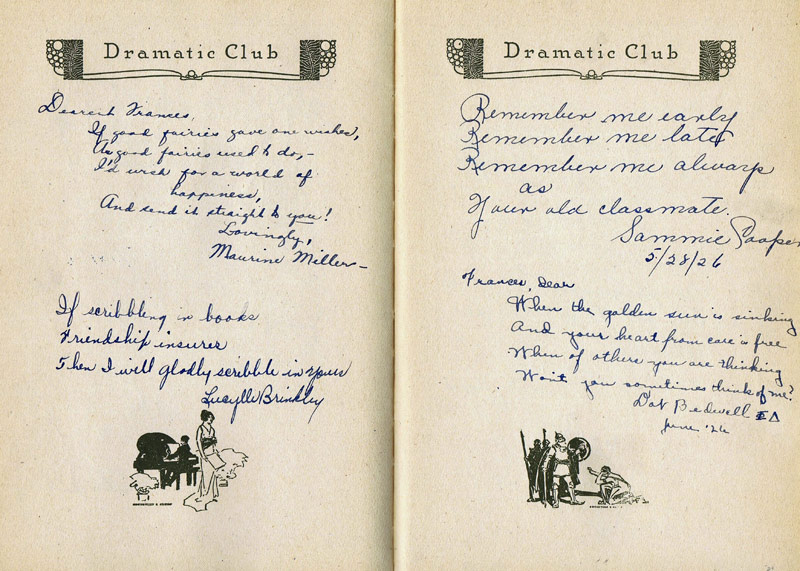 Dramatic Club
Dearest Frances,
If good fairies gave one wishes,
As good fairies used to do,—
I'd wish for a world of
happiness,
And send it straight to you!
Lovingly,
Maurine Miller—
If scribbling in books
Friendship insures
Then I will gladly scribble in yours
Lucylle Brinkley
Dramatic Club
Remember me early
Remember me late
Remember me always
as
Your old classmate.
Sammie Cooper
5/28/26
Frances, Dear
When the golden sun is sinking
And your heart from care is free
When of others you are thinking
Won't you sometimes think of me?
Dot Bedwell
June '26